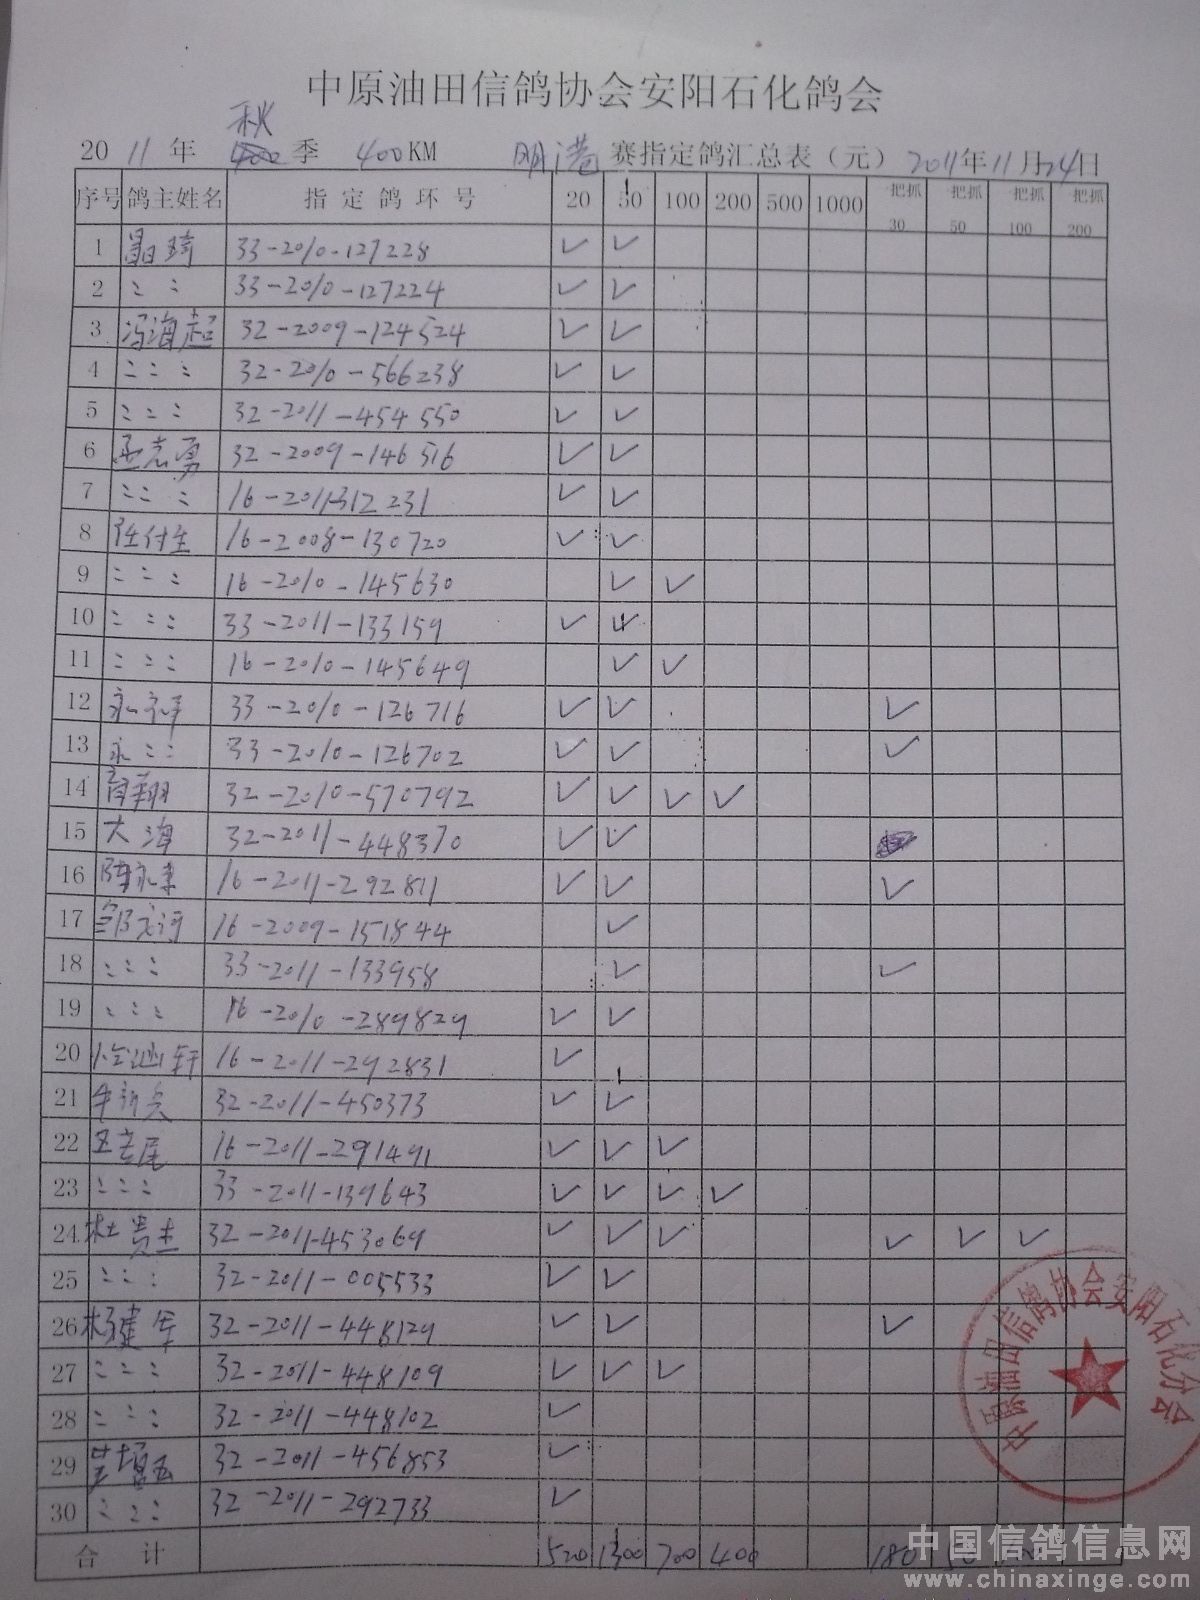 中原油田信鸽协会安阳石化鸽会
2011年 秋季 400KM 明港赛指定鸽汇总表（元）2011年11月24日
序号 鸽主姓名 指定鸽环号 20 50 100 200 500 1000 一把抓30 一把抓50 一把抓100 一把抓200
1 33-2010-127228 ✓ ✓
2 〃 〃 33-2010-127224 ✓ ✓
3 冯海超 32-2009-124524 ✓ ✓
4 〃 〃 〃 32-2010-566238 ✓ ✓
5 〃 〃 〃 32-2011-454550 ✓ ✓
6 孟志勇 32-2009-146516 ✓ ✓
7 〃 〃 〃 16-2011-312231 ✓ ✓
8 任付生 16-2008-130720 ✓ ✓
9 〃 〃 〃 16-2010-145630 ✓ ✓
10 〃 〃 〃 33-2011-133159 ✓ ✓
11 〃 〃 〃 16-2010-145649 ✓ ✓
12 33-2010-126716 ✓ ✓ ✓
13 永 〃 〃 33-2010-126702 ✓ ✓ ✓
14 32-2010-570792 ✓ ✓ ✓ ✓
15 大海 32-2011-448370 ✓ ✓
16 16-2011-292811 ✓ ✓ ✓
17 16-2009-151844 ✓
18 〃 〃 〃 33-2011-133958 ✓ ✓
19 〃 〃 〃 16-2010-289829 ✓ ✓
20 16-2011-292831 ✓
21 牛新兵 32-2011-450373 ✓ ✓
22 16-2011-291491 ✓ ✓ ✓
23 〃 〃 〃 33-2011-139643 ✓ ✓ ✓ ✓
24 杜贵杰 32-2011-453069 ✓ ✓ ✓ ✓ ✓ ✓
25 〃 〃 〃 32-2011-005533 ✓ ✓
26 杨建军 32-2011-448129 ✓ ✓ ✓
27 〃 〃 〃 32-2011-448109 ✓ ✓ ✓
28 〃 〃 〃 32-2011-448102 ✓
29 32-2011-456853 ✓
30 〃 〃 〃 32-2011-292733 ✓
合计 520 1300 700 400 180 50
中原油田信鸽协会安阳石化分会
中国信鸽信息网
www.chinaxinge.com